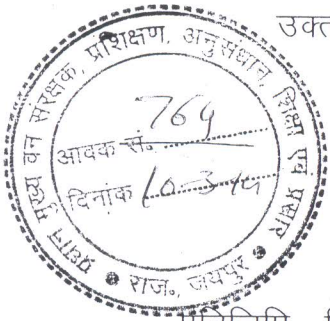 उक्त
प्रधान मुख्य वन संरक्षक, प्रशिक्षण, अनुसंधान, शिक्षा एवं प्रसार
764
आवक सं.
दिनांक 10-3-14
राज., जयपुर